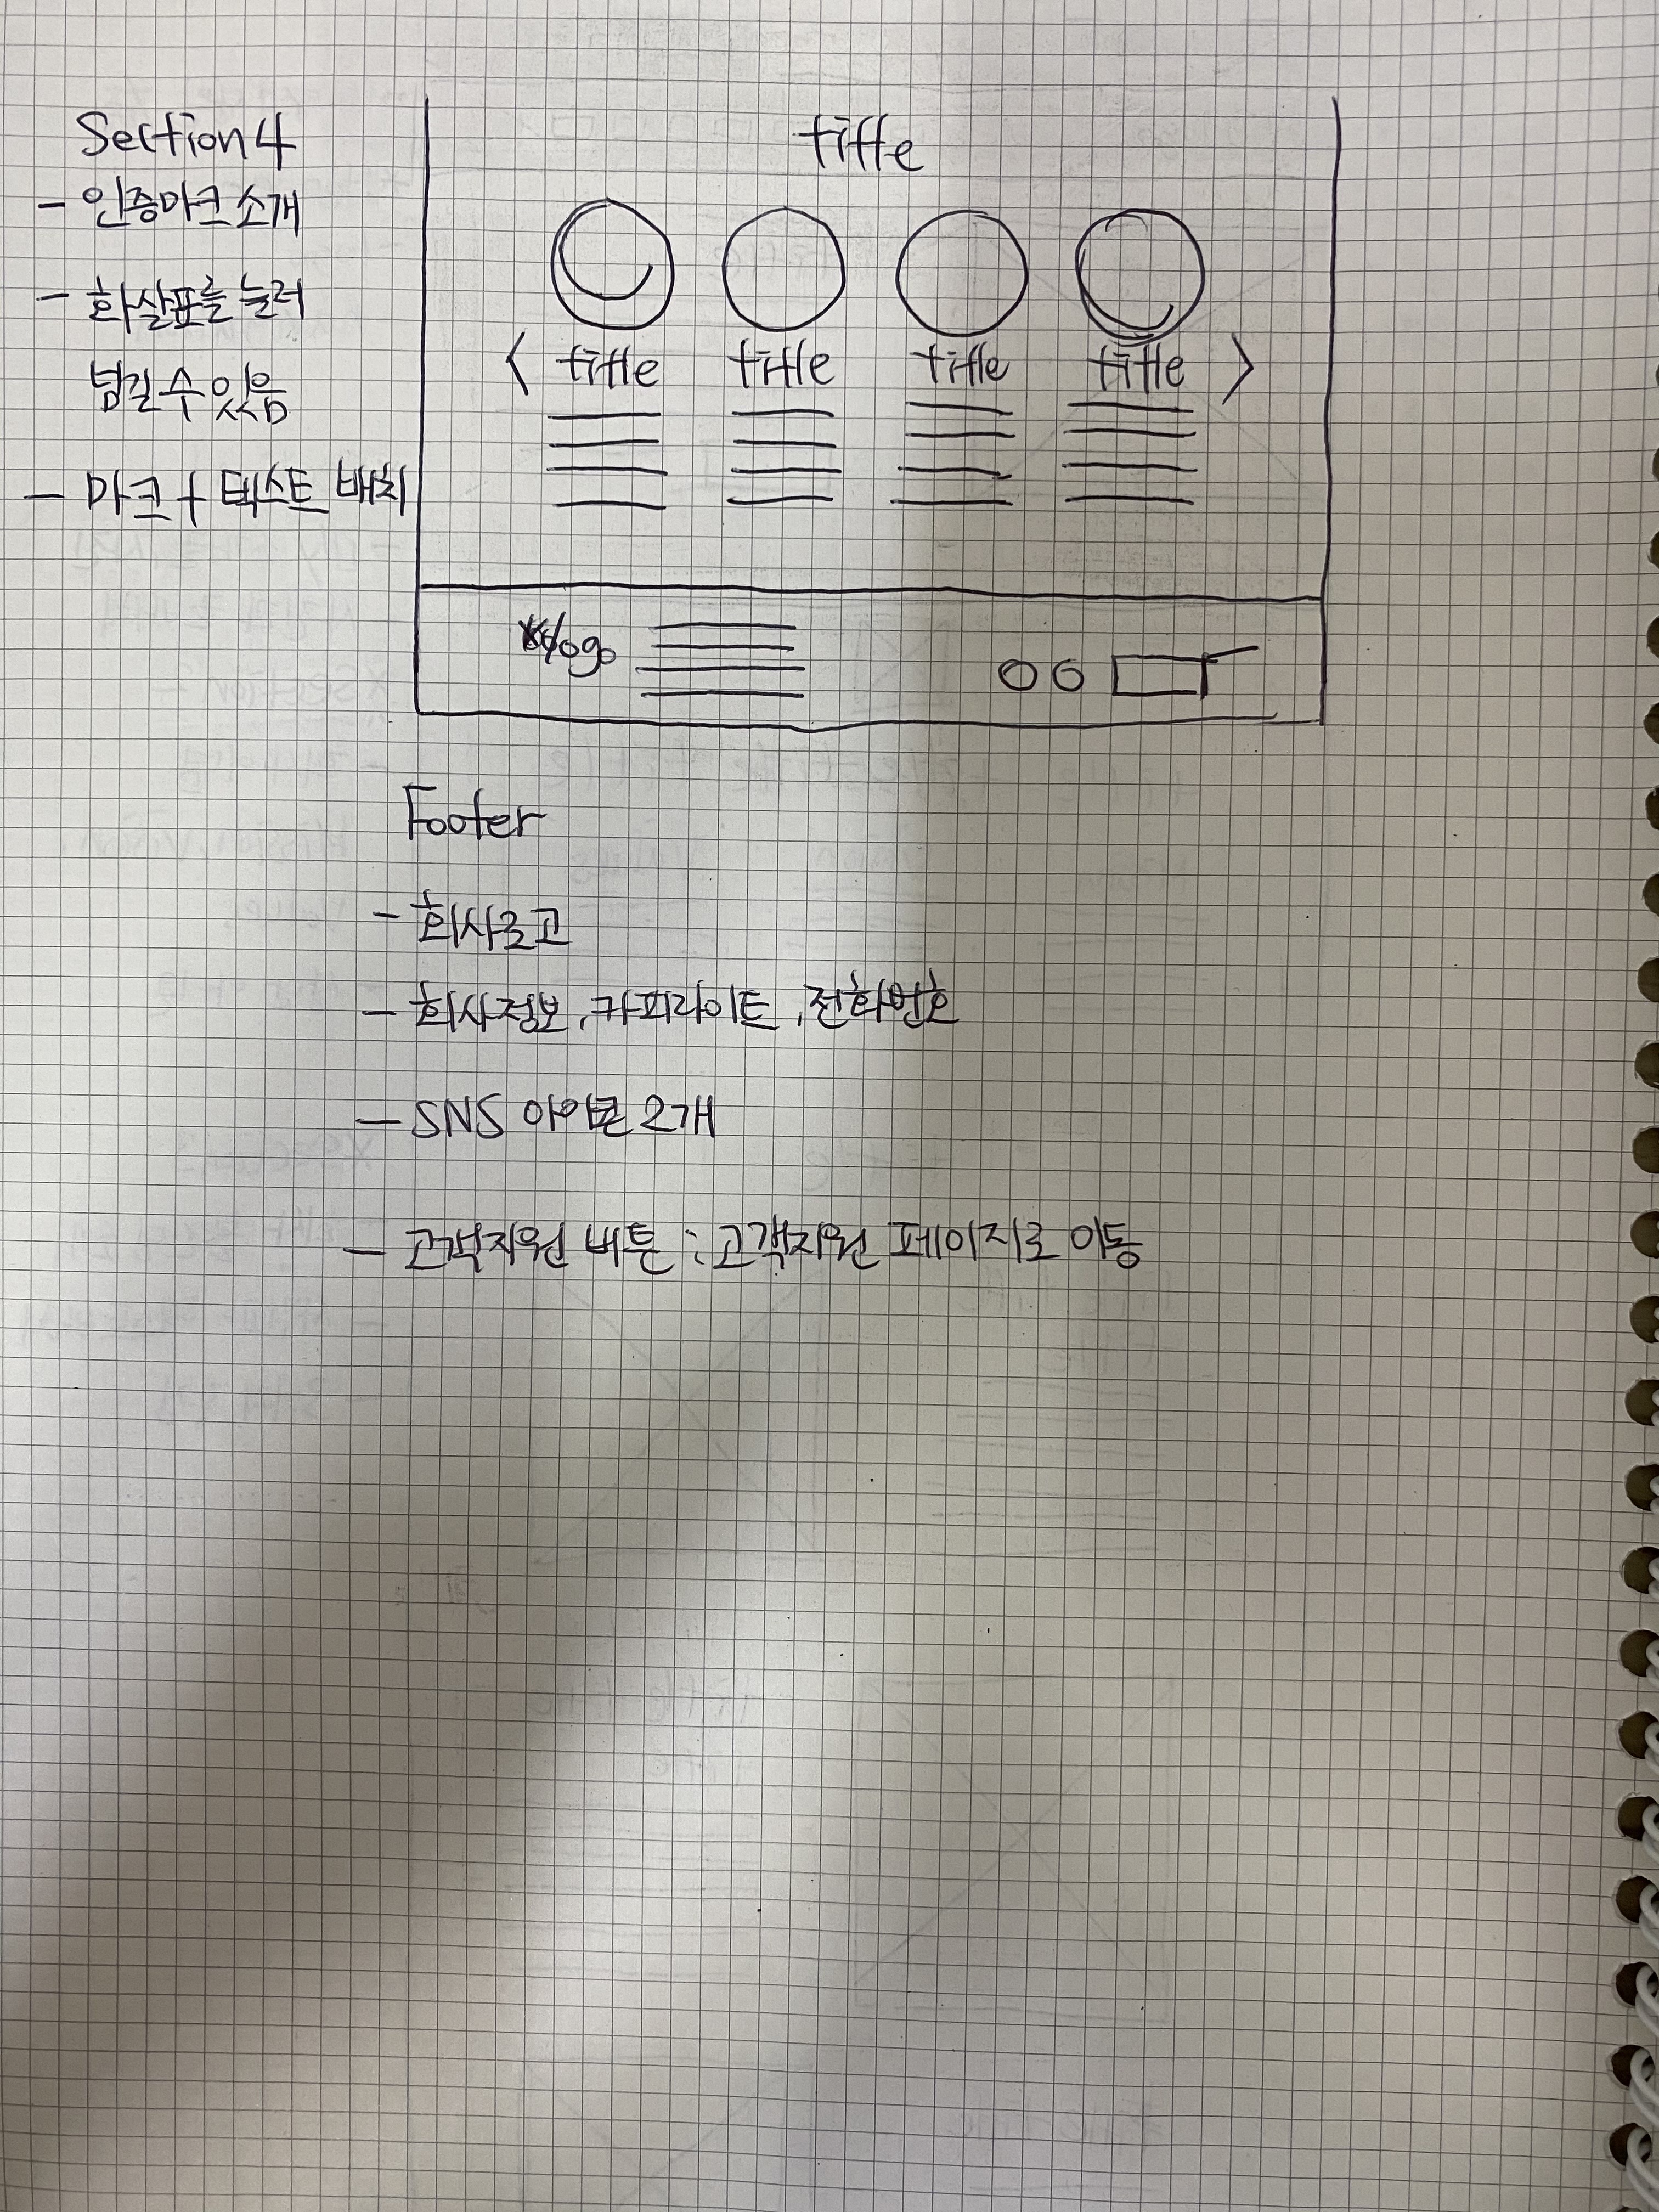 Section 4
- 인증마크 소개
- 화살표를 눌러
넘길 수 있음
- 마크 + 텍스트 배치
title
< title title title title >
logo
Footer
- 회사로고
- 회사정보, 카피라이트, 전화번호
- SNS 아이콘 2개
- 고객지원 버튼 : 고객지원 페이지로 이동